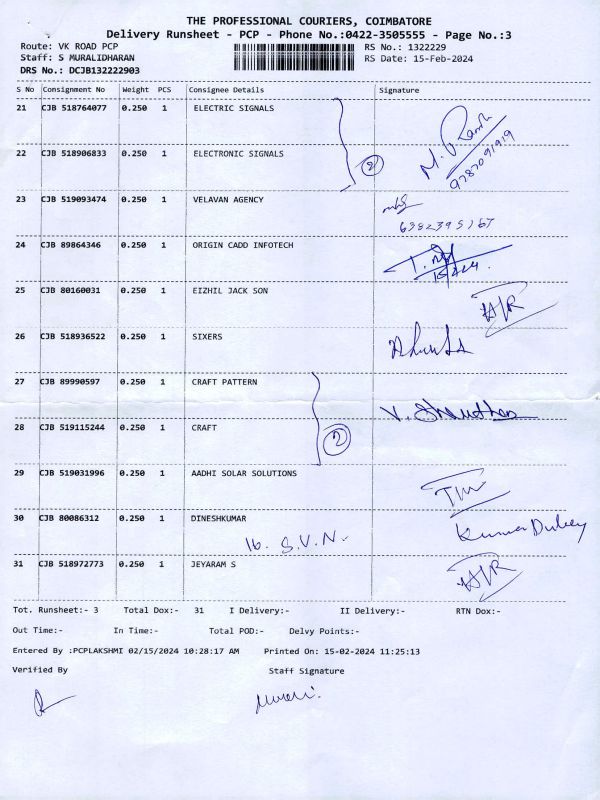 THE PROFESSIONAL COURIERS, COIMBATORE
Delivery Runsheet - PCP - Phone No.:0422-3505555 - Page No.:3
Route: VK ROAD PCP RS No.: 1322229
Staff: S MURALIDHARAN RS Date: 15-Feb-2024
DRS No.: DCJB132222903
S No Consignment No Weight PCS Consignee Details Signature
21 CJB 518764077 0.250 1 ELECTRIC SIGNALS
22 CJB 518906833 0.250 1 ELECTRONIC SIGNALS
2
9787091919
23 CJB 519093474 0.250 1 VELAVAN AGENCY
6382395167
24 CJB 89864346 0.250 1 ORIGIN CADD INFOTECH
25 CJB 80160031 0.250 1 EIZHIL JACK SON
H/R
26 CJB 518936522 0.250 1 SIXERS
27 CJB 89990597 0.250 1 CRAFT PATTERN
28 CJB 519115244 0.250 1 CRAFT
2
29 CJB 519031996 0.250 1 AADHI SOLAR SOLUTIONS
30 CJB 80086312 0.250 1 DINESHKUMAR
16. S.V.N. Kumar Dubey
31 CJB 518972773 0.250 1 JEYARAM S
H/R
Tot. Runsheet:- 3 Total Dox:- 31 I Delivery:- II Delivery:- RTN Dox:-
Out Time:- In Time:- Total POD:- Delvy Points:-
Entered By :PCPLAKSHMI 02/15/2024 10:28:17 AM Printed On: 15-02-2024 11:25:13
Verified By Staff Signature